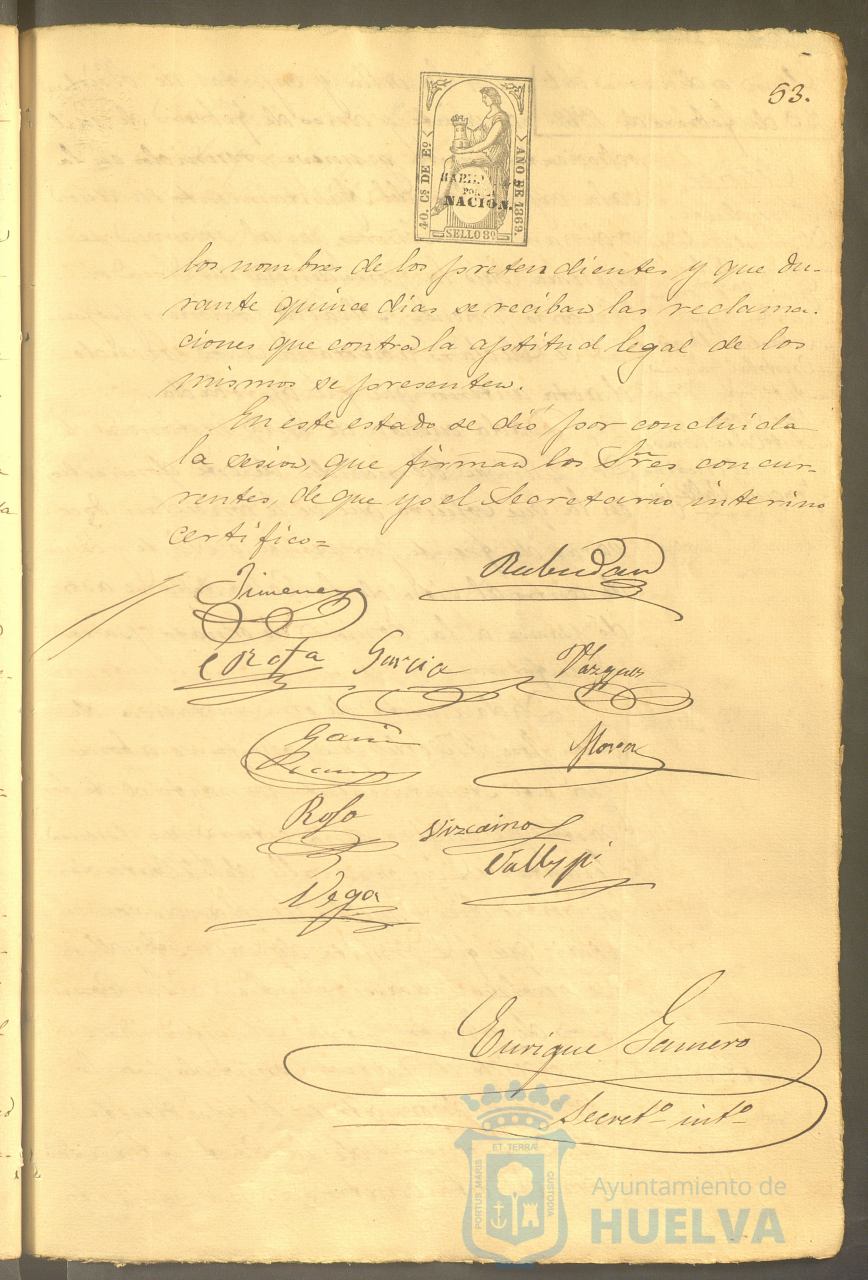 53.
40. Cs DE Eo.
AÑO DE 1869.
POR LA
NACION.
SELLO 8º
los nombres de los pretendientes y que du-
rante quince dias se reciban las reclama-
ciones que contra la aptitud legal de los
mismos se presenten.
En este estado se dió por concluida
la sesion, que firman los Sres concur-
rentes, de que yo el Secretario interino
certifico=
Jimenez
Rofa Garcia Vazquez
Mora
Rofo Vizcaino
Vega
Enrique Gamero
Secretº intº
ET TERRÆ
PORTUS MARIS
CUSTODIA
Ayuntamiento de
HUELVA